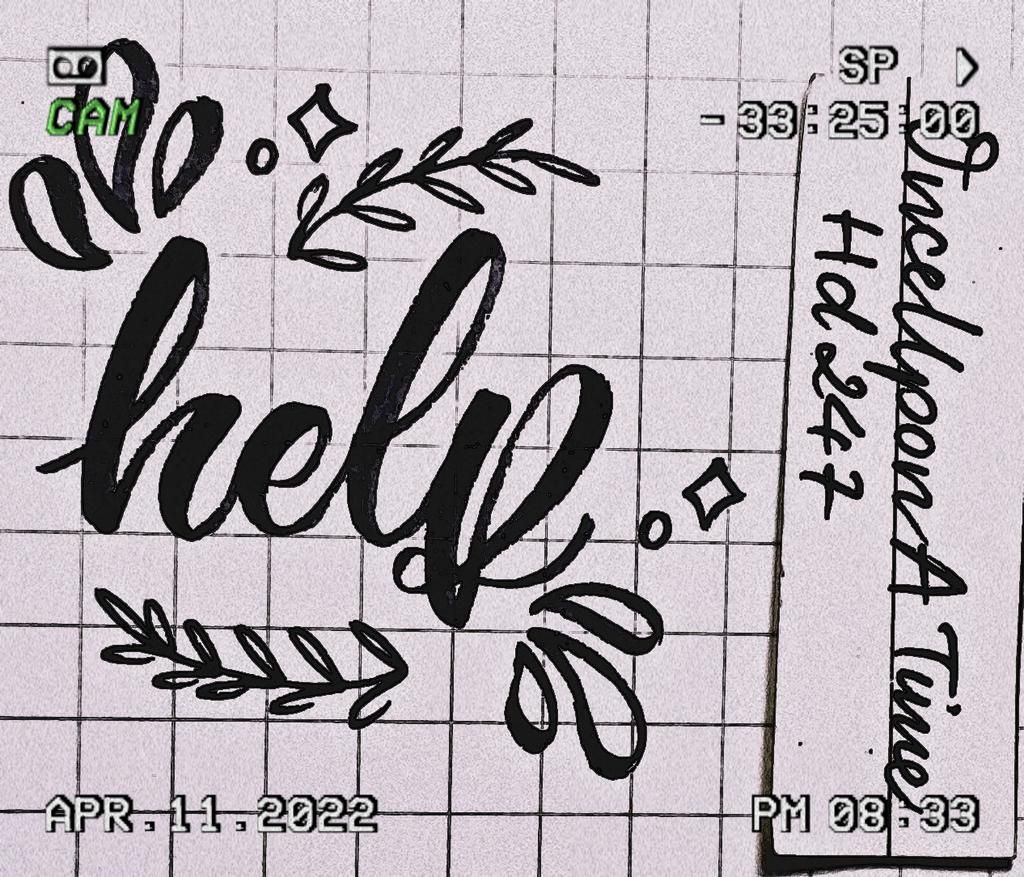 CAM
SP
-33:25:00
help
IncellponA Time
Hd247
APR.11.2022
PM 08:33